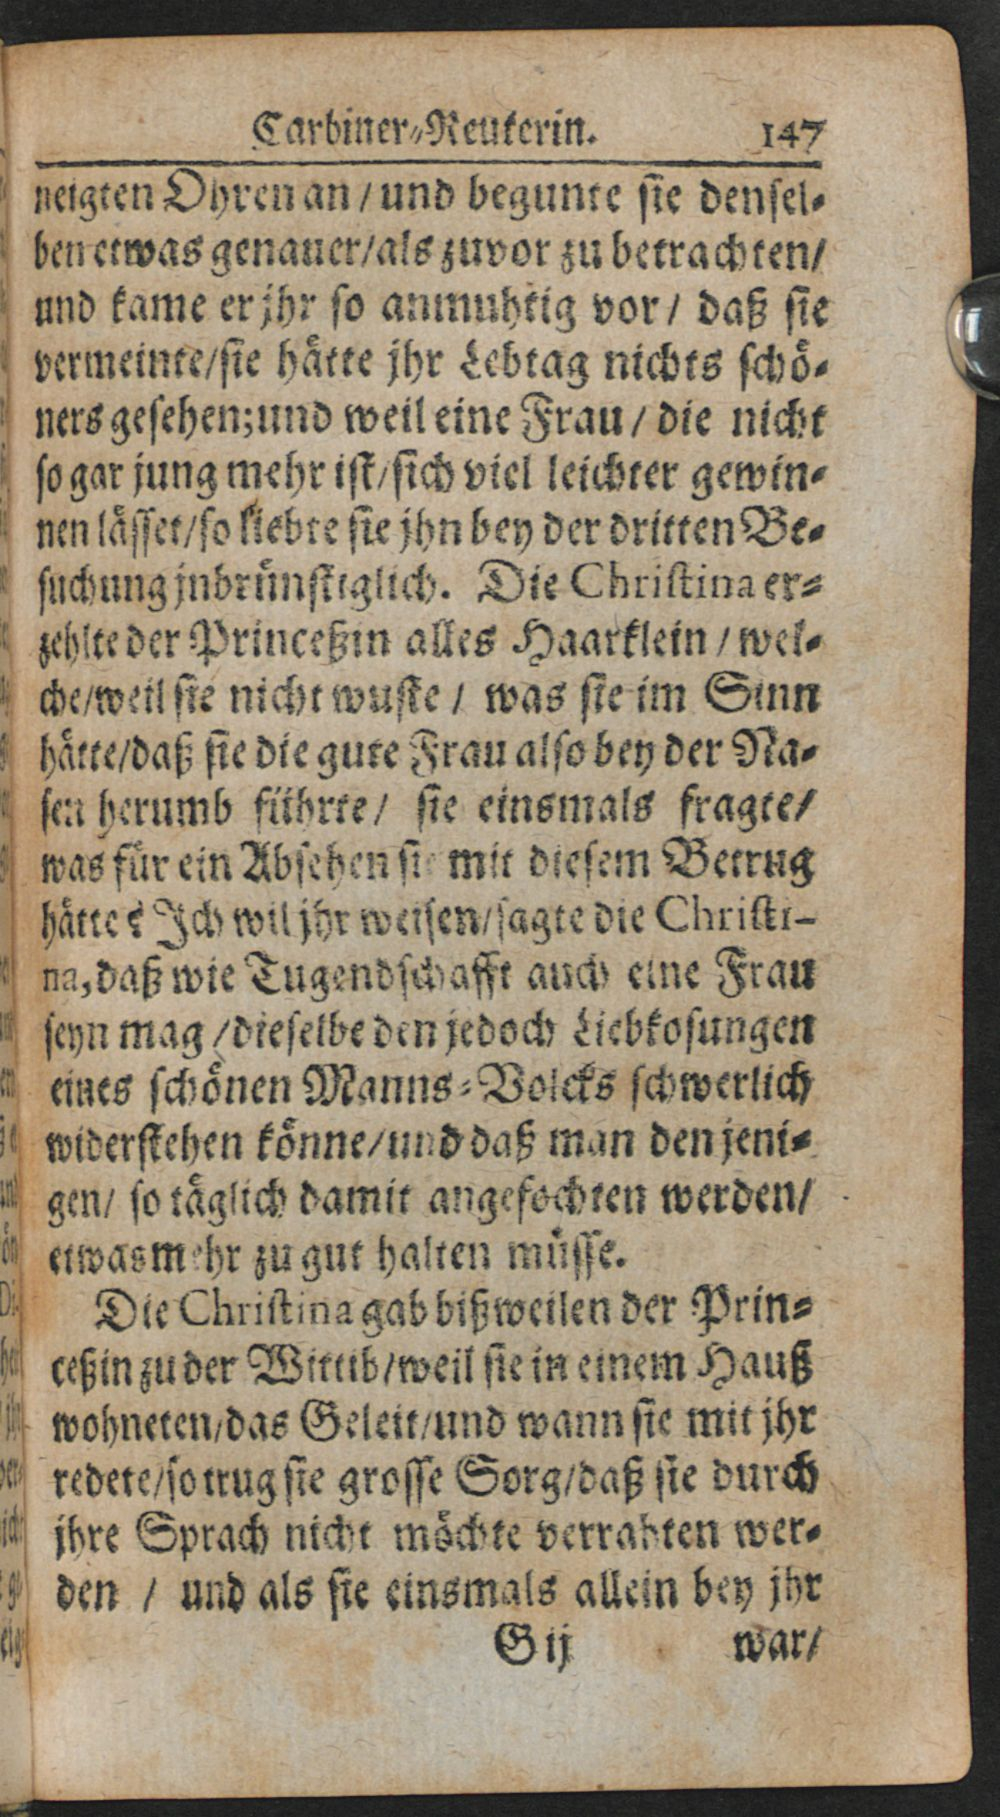 Carbiner-Reuterin. 147
neigten Ohren an / und begunte sie densel-
ben etwas genauer/als zuvor zu betrachten/
und kame er jhr so anmuhtig vor / daß sie
vermeinte/sie hätte jhr Lebtag nichts schö-
ners gesehen; und weil eine Frau / die nicht
so gar jung mehr ist/sich viel leichter gewin-
nen lässet/so liebte sie jhn bey der dritten Be-
suchung jnbrünstiglich. Die Christina er-
zehlte der Princeßin alles Haarklein / wel-
che/weil sie nicht wuste / was sie im Sinn
hätte/daß sie die gute Frau also bey der Na-
sen herumb führte / sie einsmals fragte/
was für ein Absehen sie mit diesem Betrug
hätte? Jch wil jhr weisen/sagte die Christi-
na, daß wie Tugendschafft auch eine Frau
seyn mag / dieselbe den jedoch Liebkosungen
eines schönen Manns-Volcks schwerlich
widerstehen könne/und daß man den jeni-
gen/ so täglich damit angefochten werden/
etwas mehr zu gut halten müsse.
Die Christina gab bißweilen der Prin-
ceßin zu der Wittib/weil sie in einem Hauß
wohneten/das Geleit/und wann sie mit jhr
redete/so trug sie grosse Sorg/daß sie durch
jhre Sprach nicht möchte verrahten wer-
den / und als sie einsmals allein bey jhr
G ij war/